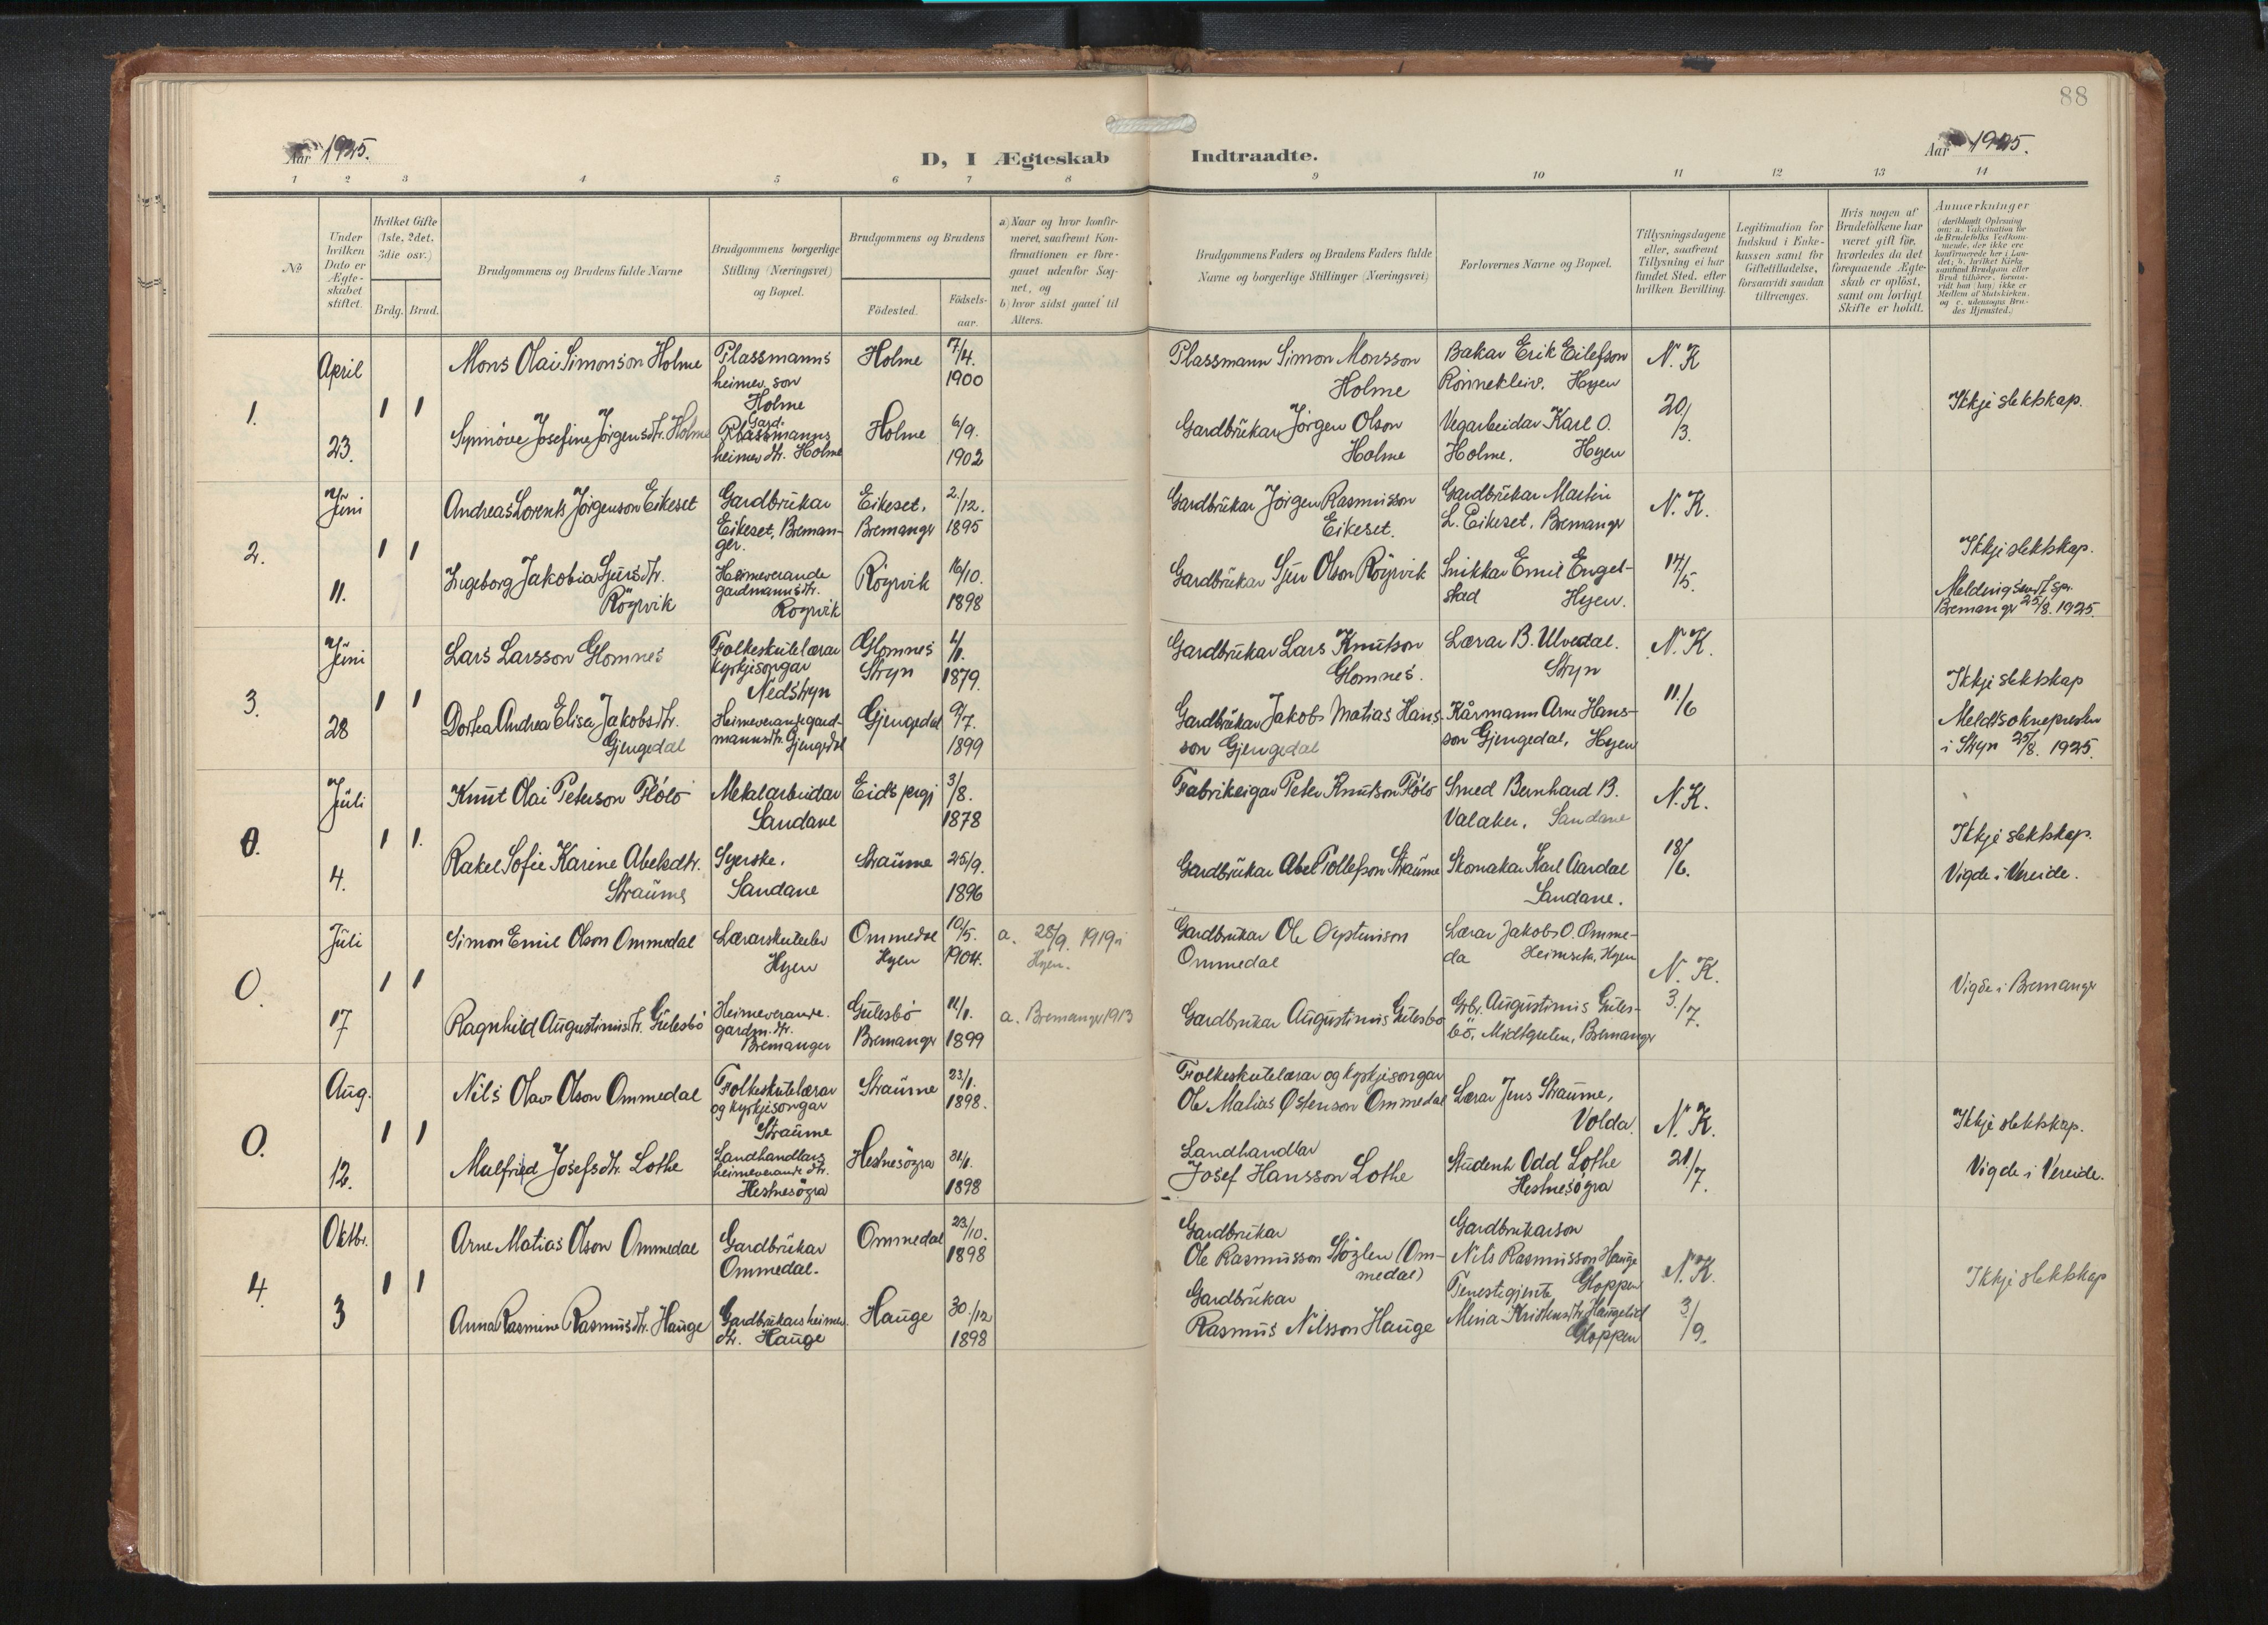 88
Aar 1925.
D, I Ægteskab
Indtraadte.
Aar 1925.
1 2 3 4 5 6 7 8
9 10 11 12 13 14
No
Under hvilken Dato er Ægte-skabet stiftet.
Hvilket Gifte (1ste, 2det, 3die osv.)
Brdg. Brud.
Brudgommens og Brudens fulde Navne
Brudgommens borgerlige Stilling (Næringsvei) og Bopæl.
Brudgommens og Brudens
Födested.
Födsels-aar.
a) Naar og hvor konfir-meret, saafremt Kon-firmationen er fore-gaaet udenfor Sog-net, og
b) hvor sidst gaaet til Alters.
Brudgommens Faders og Brudens Faders fulde Navne og borgerlige Stillinger (Næringsvei)
Forlovernes Navne og Bopæl.
Tillysningsdagene eller, saafremt Tillysning ei har fundet Sted, efter hvilken Bevilling.
Legitimation for Indskud i Enke-kassen samt for Giftetilladelse, forsaavidt saadan tiltrænges.
Hvis nogen af Brudefolkene har været gift før, hvorledes da det foregaaende Ægte-skab er oplöst, samt om lovligt Skifte er holdt.
Anmærkninger
(deriblandt Oplysning om: a. Vaksination for de Brudefolks Vedkom-mende, der ikke ere konfirmerede her i Lan-det; b. hvilket Kirke-samfund Brudgom eller Brud tilhörer, forsaa-vidt han (hun) ikke er Medlem af Statskirken, og c. udensogns Bru-des Hjemsted.)
1.
April
23.
1 1
Mons Olai Simonson Holme
Plassmanns
heimev. son
Holme
Holme
7/4.
1900
Plassmann Simon Monsson
Holme
Bakar Erik Eilefson
Rönnekleiv. Hyen
N. K
20/3.
Ikkje slektskap.
Synnöve Josefine Jörgensdtr. Holme
Gard-
Plassmanns
heimev dtr. Holme
Holme
6/9.
1902
Gardbrukar Jörgen Olson
Holme
Vegarbeidar Karl O.
Holme. Hyen
2.
Juni
11.
1 1
Andreas Lorents Jörgenson Eikeset
Gardbrukar
Eikeset, Breman-
ger.
Eikeset,
Bremangr
2./12.
1895
Gardbrukar Jörgen Rasmusson
Eikeset.
Gardbrukar Martin
L. Eikeset, Bremangr
N. K.
14/5.
Ikkje slektskap.
Melding sendt spr.
Bremangr 25/8. 1925.
Ingeborg Jakobia Sjursdtr.
Röyrvik
Heimeverande
gardmannsdtr.
Royrvik
Röyrvik
16/10.
1898
Gardbrukar Sjur Olson Röyrvik
Snikkar Emil Engel-
stad Hyen.
3.
Juni
28
1 1
Lars Larsson Glomnes
Folkeskulelærar
kyrkjesongar
Nedstryn
Glomnes
Stryn
4/1.
1879.
Gardbrukar Lars Knutson
Glomnes.
Lærar B. Ulvedal.
Stryn
N. K.
11/6
Ikkje slektskap
Meldt soknepresten
i Stryn 25/8. 1925.
Dortea Andrea Elisea Jakobsdtr.
Gjengedal
Heimeverande gard-
mannsdtr. Gjengedal
Gjengedal
9/7.
1899
Gardbrukar Jakob Matias Hans-
son Gjengedal
Kårmann Arne Hans-
son Gjengedal, Hyen
0.
Juli
4.
1 1.
Knut Olai Peterson Flölo
Metalarbeidar
Sandane
Eids prgj
3/8.
1878
Fabrikeigar Peter Knutson Flölo
Smed Bernhard B.
Valaker, Sandane
N. K.
18/6.
Ikkje slektskap.
Vigde i Vereide.
Rakel Sofie Karine Abelsdtr.
Straume
Syerske,
Sandane
Straume
25/9.
1896
Gardbrukar Abel Tollefson Straume
Skomakar Karl Aardal
Sandane.
0.
Juli
17
1 1
Simon Emil Olson Ommedal
Lærarskuleelev
Hyen
Ommedal
Hyen
10/5.
1904.
a. 28/9. 1919 i
Hyen.
Gardbrukar Ole Öystenson
Ommedal
Lærar Jakob O. Omme-
da Heimseta, Hyen
N. K.
3./7.
Vigde i Bremangr
Ragnhild Augustinusdtr. Gulesbö
Heimeverande.
gardm. dtr.
Bremanger
Gulesbö
Bremangr
11/1.
1899
a. Bremangr 1913
Gardbrukar Augustinus Gulesbo
Grbr. Augustinus Gules-
bö, Midtgulen, Bremangr
0.
Aug.
12.
1 1
Nils Olav Olson Ommedal
Folkeskulelærar
og kyrkjesongar
Straume
Straume
23/1.
1898.
Folkeskulelærar og kyrkjesongar
Ole Matias Østenson Ommedal
Lærar Jens Straume,
Volda.
N. K.
21/7.
Ikkje slektskap.
Vigde i Vereide.
Malfried Josefsdtr. Lothe
Landhandlars
heimeverande dtr.
Hestnesögra
Hestnesögra
31/1.
1898
Landhandlar
Josef Hansson Lothe
Student Odd Lothe
Hestnesögra
4.
Oktbr.
3
1 1
Arne Matias Olson Ommedal
Gardbrukar
Ommedal.
Ommedal
23/10.
1898
Gardbrukar
Ole Rasmusson Stöylen (Om-
medal)
Gardbrukarson
Nils Rasmusson Hauge
Gloppen
N. K.
3/9.
Ikkje slektskap
Anna Rasmine Rasmusdtr. Hauge
Gardbrukars heimev.
dtr. Hauge
Hauge
30./12
1898
Gardbrukar
Rasmus Nilsson Hauge
Tenestegjente
Mina Kristensdtr. Haugelid
Gloppen